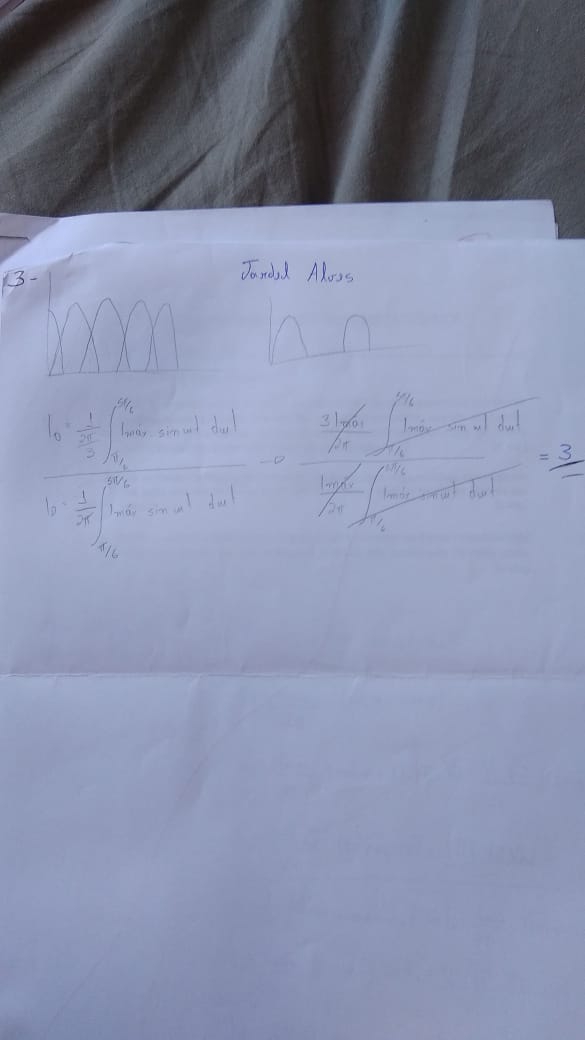 3- Jardel Alves
I₀ = 1/(2π/3) ∫_{π/6}^{5π/6} Imáx sin wt dwt
3 Imáx/2π ∫_{π/6}^{5π/6} Imáx sin wt dwt
= 3
I_D = 1/2π ∫_{π/6}^{5π/6} Imáx sin wt dwt
Imáx/2π ∫_{π/6}^{5π/6} Imáx sin wt dwt